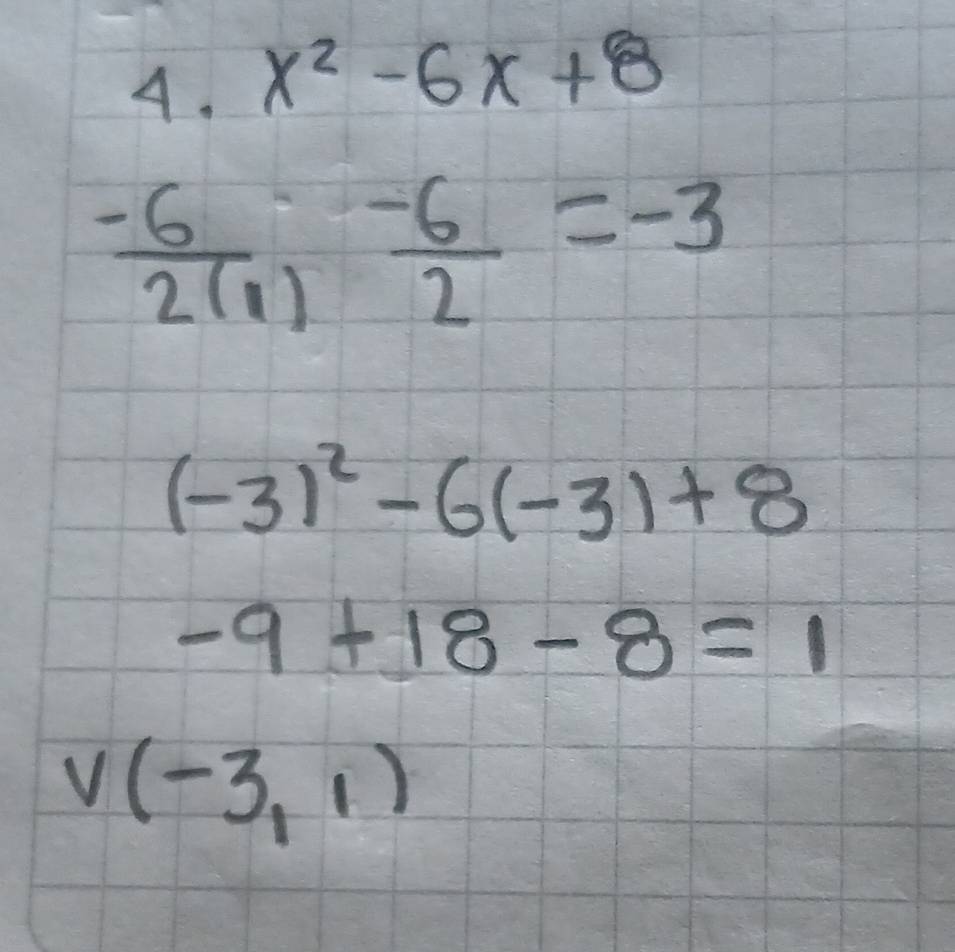 4. x² -6x +8
-6/2(1) -6/2 = -3
(-3)² -6(-3) + 8
-9 + 18 - 8 = 1
V(-3, 1)